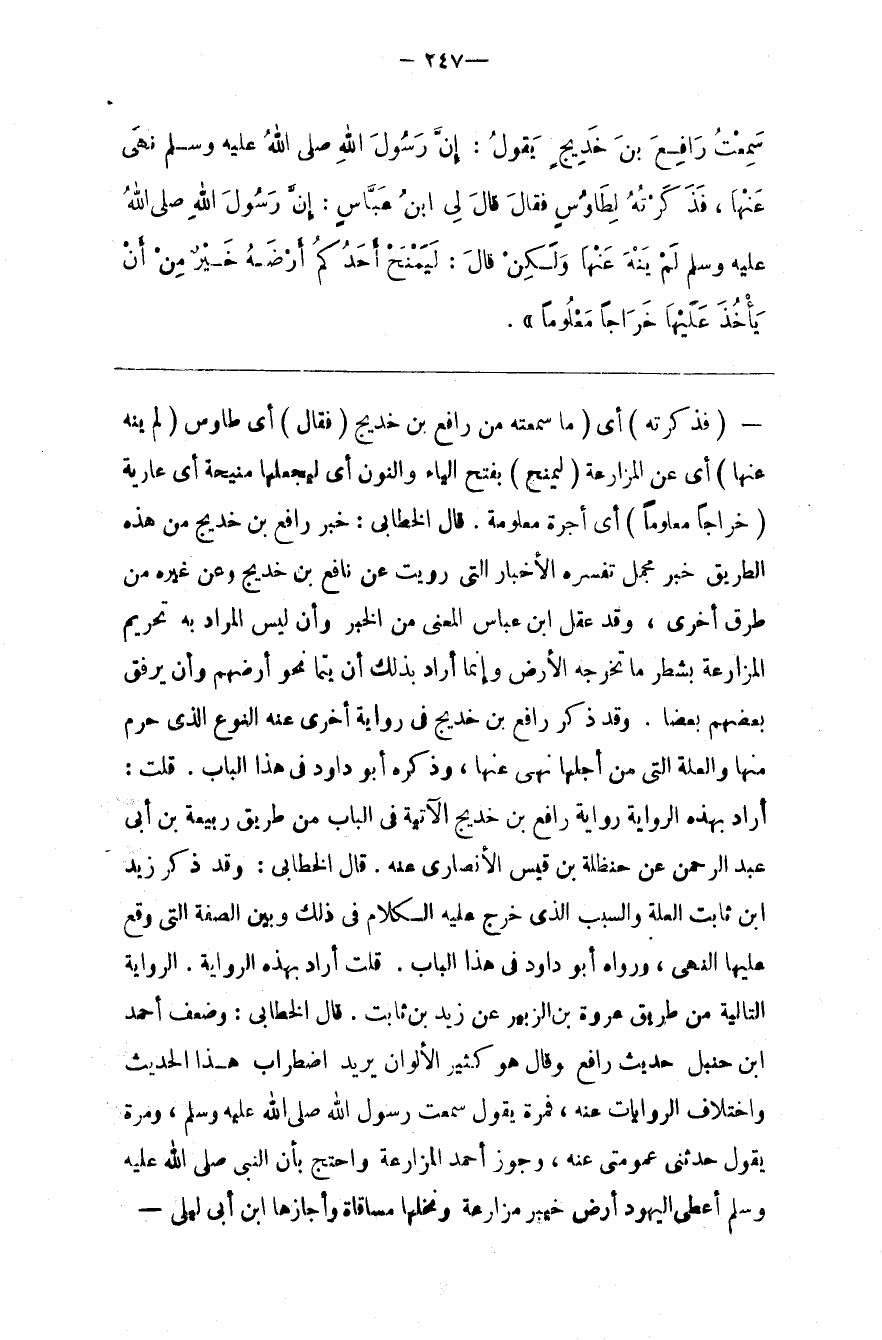 — ٢٤٧ —
سَمِعْتُ رَافِعَ بنَ خَدِيجٍ يَقولُ : إنَّ رَسُولَ اللهِ صلى اللهُ عليه وسلم نهَى
عَنْهَا ، فَذَكَرْتُهُ لِطَاوُسٍ فقالَ قالَ لِى ابنُ عَبَّاسٍ : إنَّ رَسُولَ اللهِ صلى اللهُ
عليه وسلم لَمْ يَنْهَ عَنْهَا وَلَـكِنْ قالَ : لَيَمْنَحْ أَحَدُكُمُ أَرْضَـهُ خَـيْرٌ مِنْ أَنْ
يَأْخُذَ عَلَيْهَا خَرَاجاً مَعْلُوماً » .
— ( فذكرته ) أى ( ما سمعته من رافع بن خديج ( فقال ) أى طاوس ( لم ينه
عنها ) أى عن المزارعة ( ليمنح ) بفتح الياء والنون أى ليجعلها منيحة أى عارية
( خراجاً معلوماً ) أى أجرة معلومة . قال الخطابى : خبر رافع بن خديج من هذه
الطريق خبر مجمل تفسره الأخبار التى رويت عن نافع بن خديج وعن غيره من
طرق أخرى ، وقد عقل ابن عباس المعنى من الخبر وأن ليس المراد به تحريم
المزارعة بشطر ما تخرجه الأرض وإنما أراد بذلك أن يتما نحو أرضهم وأن يرفق
بعضهم بعضا . وقد ذكر رافع بن خديج فى رواية أخرى عنه النوع الذى حرم
منها والعلة التى من أجلها نهى عنها ، وذكره أبو داود فى هذا الباب . قلت :
أراد بهذه الرواية رواية رافع بن خديج الآتية فى الباب من طريق ربيعة بن أبى
عبد الرحمن عن حنظلة بن قيس الأنصارى عنه . قال الخطابى : وقد ذكر زيد
ابن ثابت العلة والسبب الذى خرج عليه الـكلام فى ذلك وبين الصفة التى وقع
عليها النهى ، ورواه أبو داود فى هذا الباب . قلت أراد بهذه الرواية . الرواية
التالية من طريق عروة بن الزبير عن زيد بن ثابت . قال الخطابى : وضعف أحمد
ابن حنبل حديث رافع وقال هو كثير الألوان يريد اضطراب هـذا الحديث
واختلاف الروايات عنه ، فمرة يقول سمعت رسول الله صلى الله عليه وسلم ، ومرة
يقول حدثنى عمومتى عنه ، وجوز أحمد المزارعة واحتج بأن النبى صلى الله عليه
وسلم أعطى اليهود أرض خيبر مزارعة ونخلها مساقاة وأجازها ابن أبى ليلى —